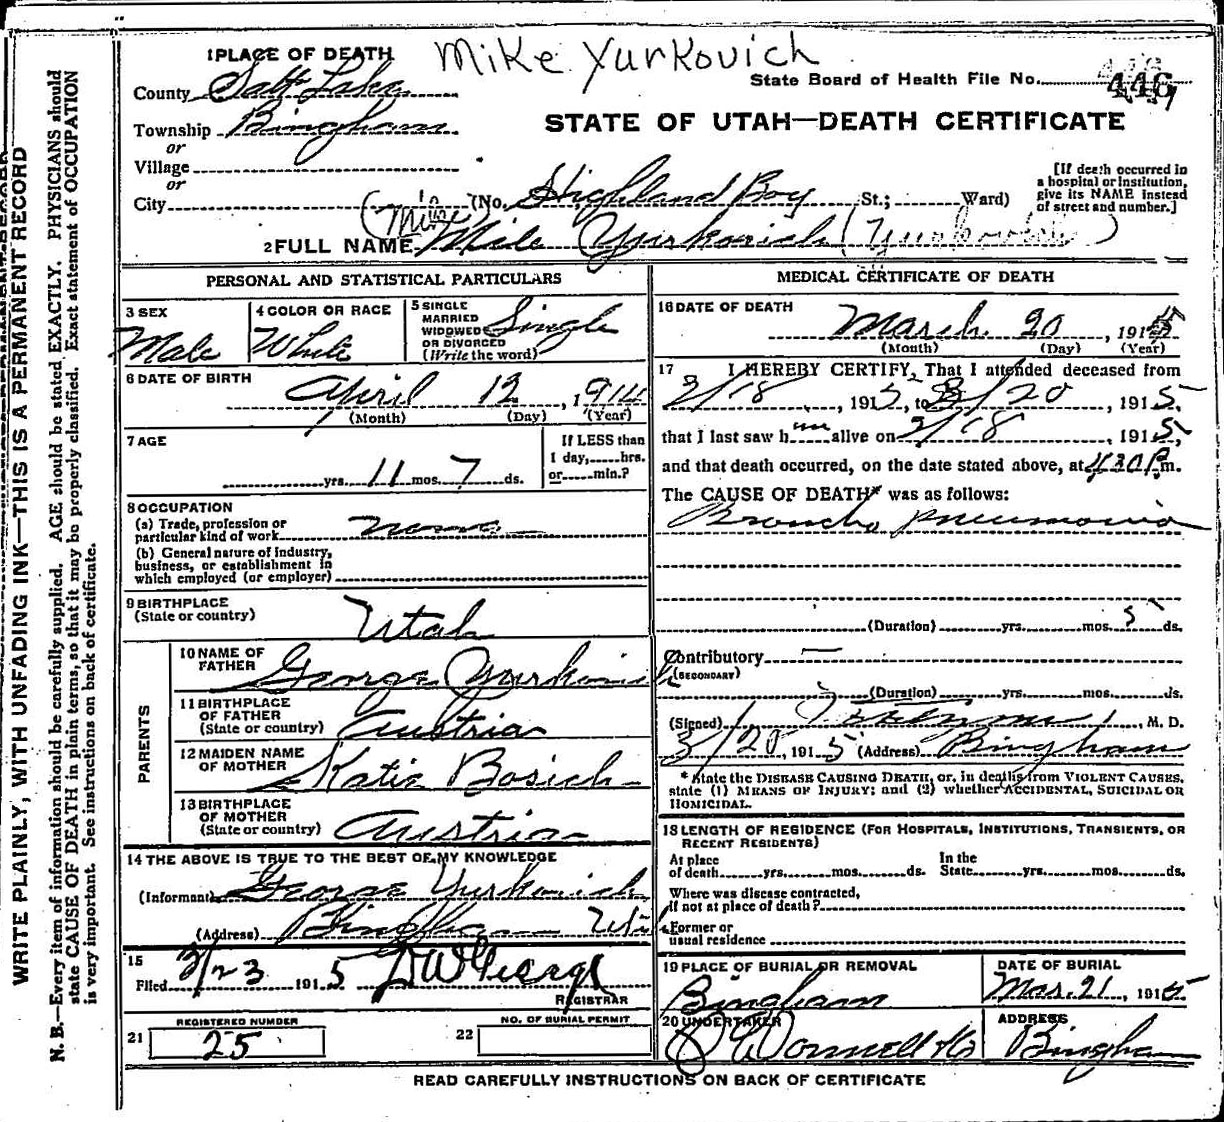 Mike Yurkovich
1 PLACE OF DEATH
State Board of Health File No. 446
County Salt Lake
STATE OF UTAH—DEATH CERTIFICATE
Township Bingham
or
Village
or
City (No. Highland Boy St.; Ward)
[If death occurred in
a hospital or institution,
give its NAME instead
of street and number.]
2 FULL NAME Mile Yurkovich
PERSONAL AND STATISTICAL PARTICULARS
3 SEX
Male
4 COLOR OR RACE
White
5 SINGLE
MARRIED
WIDOWED
OR DIVORCED
(Write the word)
Single
6 DATE OF BIRTH
April 12, 1914
(Month) (Day) (Year)
7 AGE
yrs. 11 mos. 7 ds.
If LESS than
1 day, hrs.
or min.?
8 OCCUPATION
(a) Trade, profession or
particular kind of work none
(b) General nature of industry,
business, or establishment in
which employed (or employer)
9 BIRTHPLACE
(State or country) Utah
PARENTS
10 NAME OF
FATHER George Yurkovich
11 BIRTHPLACE
OF FATHER
(State or country) Austria
12 MAIDEN NAME
OF MOTHER Katie Bosich
13 BIRTHPLACE
OF MOTHER
(State or country) Austria
14 THE ABOVE IS TRUE TO THE BEST OF MY KNOWLEDGE
(Informant) George Yurkovich
(Address) Bingham Utah
15
Filed 3/23 1915 D W George
REGISTRAR
REGISTERED NUMBER
21 25
NO. OF BURIAL PERMIT
22
MEDICAL CERTIFICATE OF DEATH
16 DATE OF DEATH
March 20, 1915
(Month) (Day) (Year)
17 I HEREBY CERTIFY, That I attended deceased from
3/18, 1915, to 3/20, 1915,
that I last saw him alive on 3/18, 1915,
and that death occurred, on the date stated above, at 4.30 P.m.
The CAUSE OF DEATH* was as follows:
Broncho pneumonia
(Duration) yrs. mos. 5 ds.
Contributory
(SECONDARY)
(Duration) yrs. mos. ds.
(Signed), M. D.
3/20, 1915 (Address) Bingham
* State the DISEASE CAUSING DEATH, or, in deaths from VIOLENT CAUSES,
state (1) MEANS OF INJURY; and (2) whether ACCIDENTAL, SUICIDAL OR
HOMICIDAL.
18 LENGTH OF RESIDENCE (FOR HOSPITALS, INSTITUTIONS, TRANSIENTS, OR
RECENT RESIDENTS)
At place
of death yrs. mos. ds.
In the
State yrs. mos. ds.
Where was disease contracted,
if not at place of death?
Former or
usual residence
19 PLACE OF BURIAL OR REMOVAL
Bingham
DATE OF BURIAL
Mar. 21, 1915
20 UNDERTAKER
O'Donnell & Co
ADDRESS
Bingham
READ CAREFULLY INSTRUCTIONS ON BACK OF CERTIFICATE
WRITE PLAINLY, WITH UNFADING INK—THIS IS A PERMANENT RECORD
N. B.—Every item of information should be carefully supplied. AGE should be stated EXACTLY. PHYSICIANS should
state CAUSE OF DEATH in plain terms, so that it may be properly classified. Exact statement of OCCUPATION
is very important. See instructions on back of certificate.